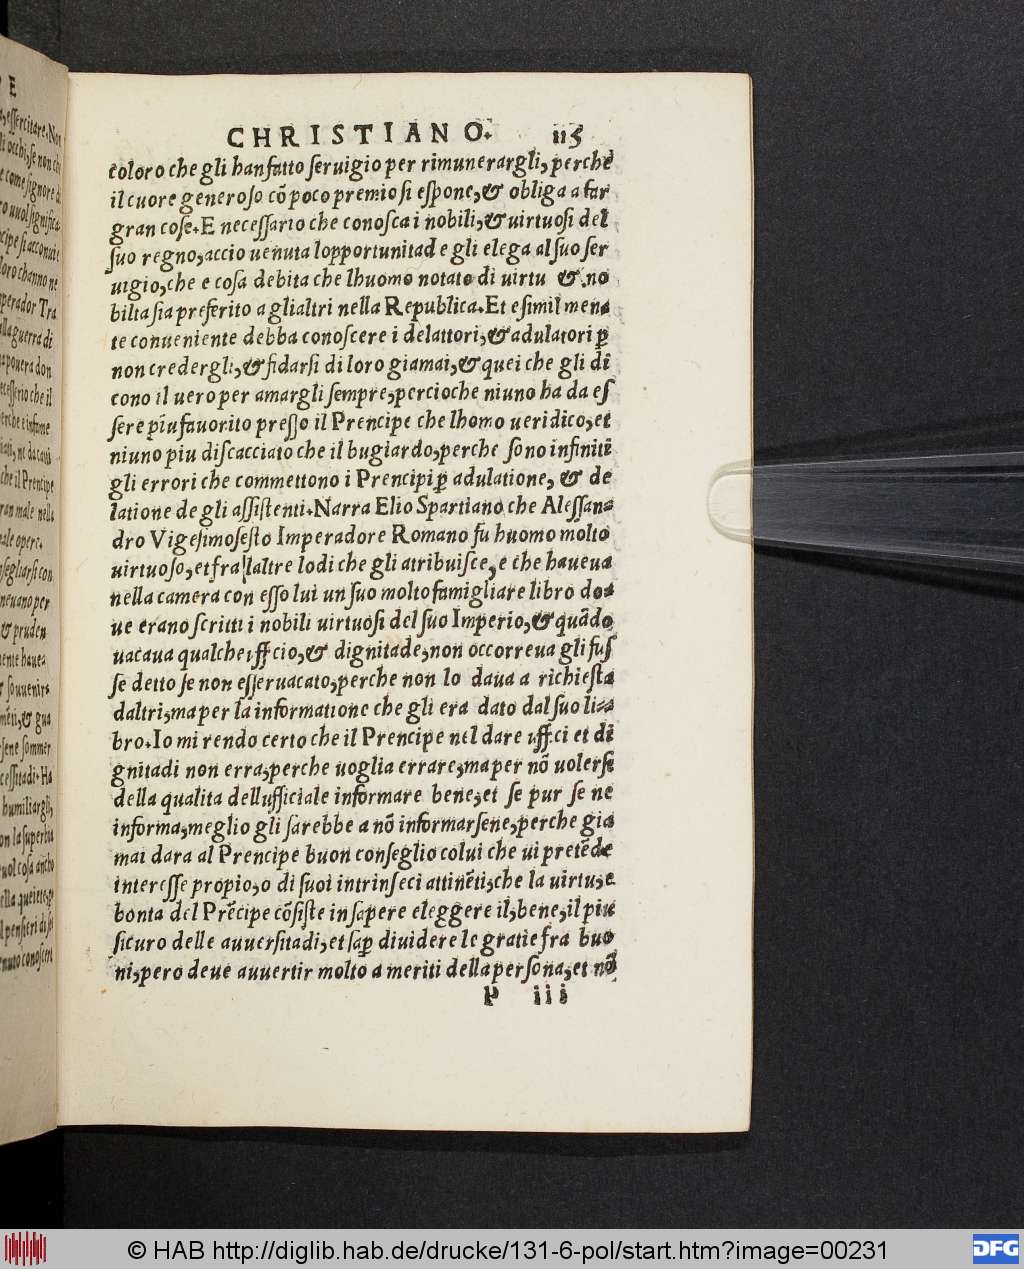 CHRISTIANO. 115
coloro che gli han fatto seruigio per rimunerargli, perche
il cuore generoso cõ poco premio si espone, & obliga a far
gran cose. E necessario che conosca i nobili, & uirtuosi del
suo regno, accio uenuta lopportunitad e gli elega al suo ser
uigio, che e cosa debita che lhuomo notato di uirtu & no
bilta sia preferito a glialtri nella Republica. Et e simil mena
te conueniente debba conoscere i delattori, & adulatori ꝑ
non credergli, & fidarsi di loro giamai, & quei che gli di
cono il uero per amargli sempre, percioche niuno ha da es
sere piu fauorito presso il Prencipe che lhomo ueridico, et
niuno piu discacciato che il bugiardo, perche sono infiniti
gli errori che commettono i Prencipi ꝑ adulatione, & de
latione de gli assistenti. Narra Elio Spartiano che Alessan=
dro Vigesimosesto Imperadore Romano fu huomo molto
uirtuoso, et fra laltre lodi che gli atribuisce, e che haueua
nella camera con esso lui un suo molto famigliare libro do=
ue erano scritti i nobili uirtuosi del suo Imperio, & quãdo
uacaua qualche ufficio, & dignitade, non occorreua gli fus
se detto se non esser uacato, perche non lo daua a richiesta
daltri, ma per la informatione che gli era dato dal suo li=
bro. Io mi rendo certo che il Prencipe nel dare uffici et di
gnitadi non erra, perche uoglia errare, ma per nõ uolersi
della qualita dellufficiale informare bene, et se pur se ne
informa, meglio gli sarebbe a nõ informarsene, perche gia
mai dara al Prencipe buon conseglio colui che ui pretẽde
interesse propio, o di suoi intrinseci attinẽti, che la uirtu, e
bonta del Prẽcipe cõsiste in sapere eleggere il, bene, il piu
sicuro delle auuersitadi, et saꝑ diuidere le gratie fra buo
ni, pero deue auuertir molto a meriti della persona, et nõ
P iii
© HAB http://diglib.hab.de/drucke/131-6-pol/start.htm?image=00231
DFG